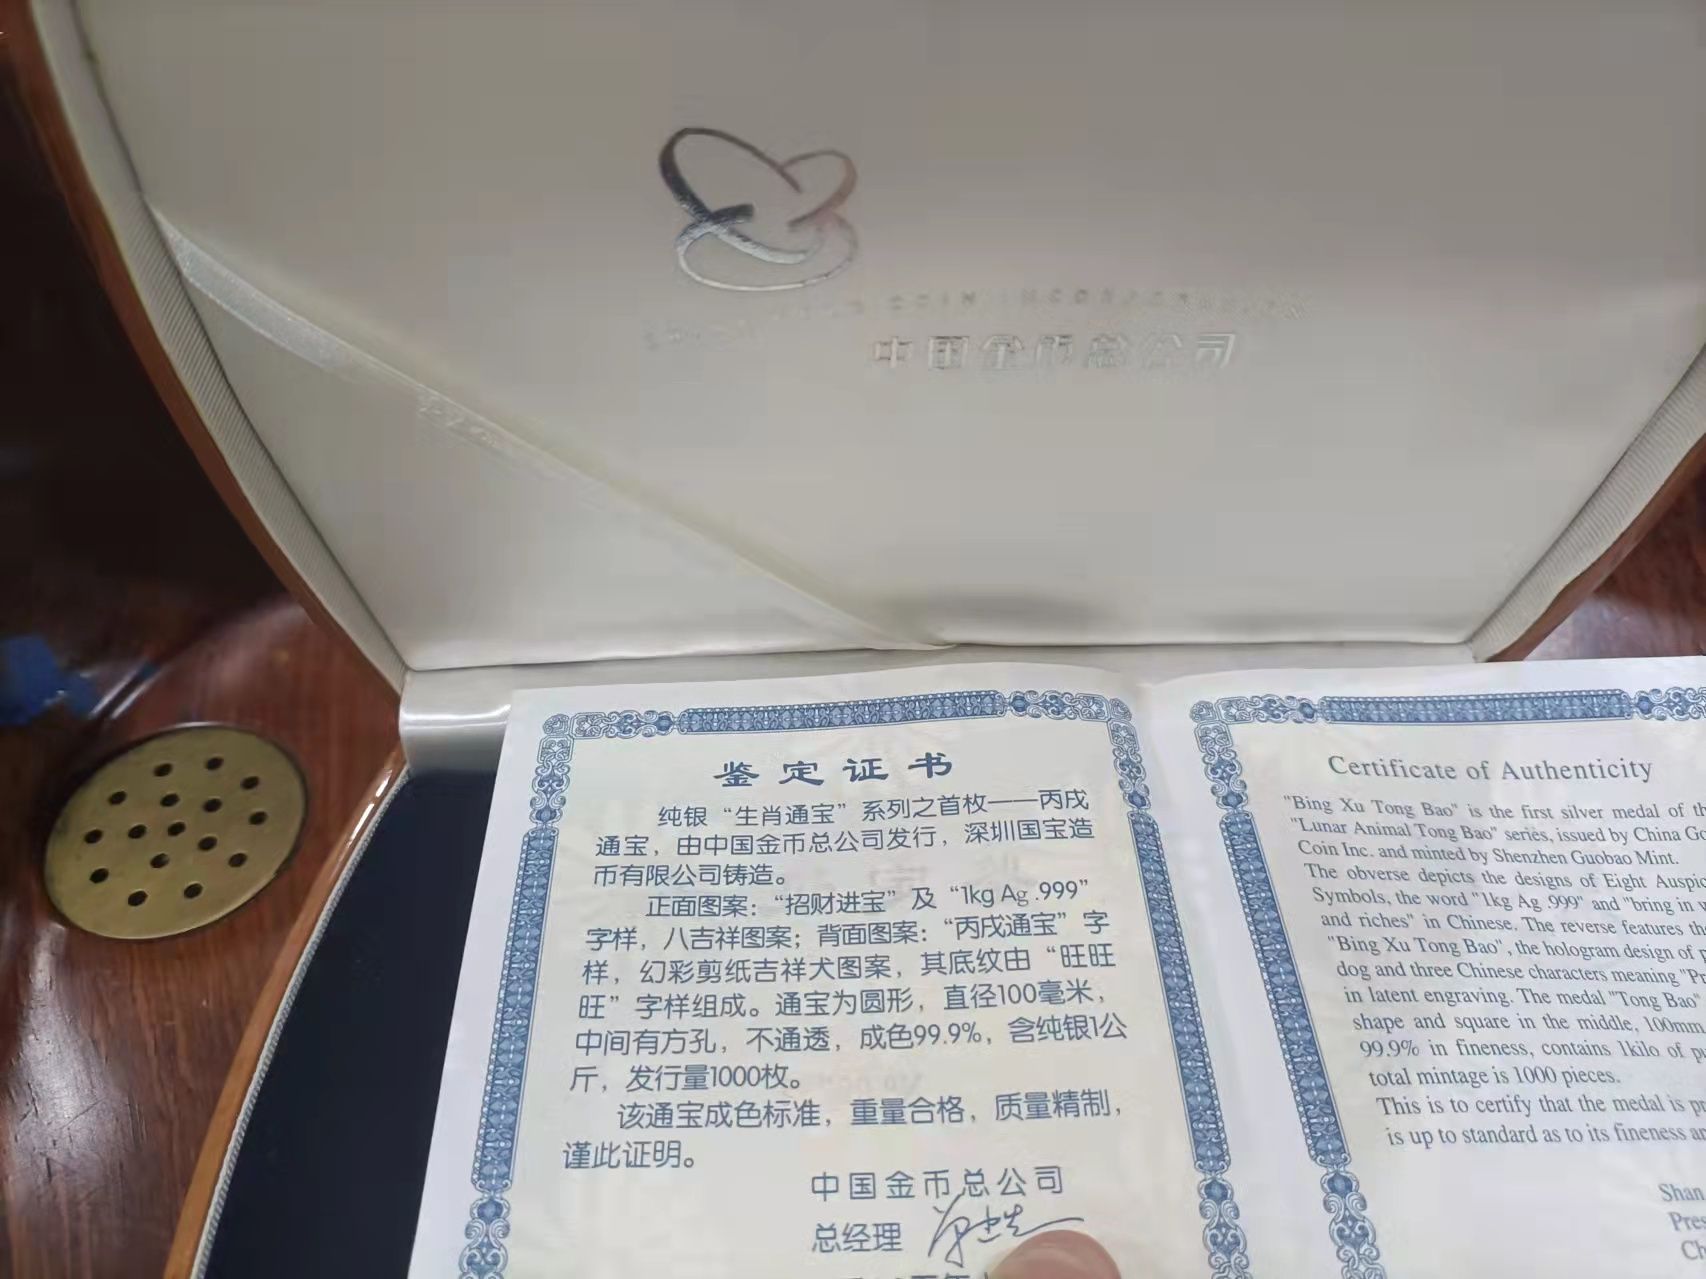 COIN INCORPORATION
中国金币总公司
鉴定证书
纯银“生肖通宝”系列之首枚——丙戌
通宝，由中国金币总公司发行，深圳国宝造
币有限公司铸造。
正面图案：“招财进宝”及“1kg Ag .999”
字样，八吉祥图案；背面图案：“丙戌通宝”字
样，幻彩剪纸吉祥犬图案，其底纹由“旺旺
旺”字样组成。通宝为圆形，直径100毫米，
中间有方孔，不通透，成色99.9%，含纯银1公
斤，发行量1000枚。
该通宝成色标准，重量合格，质量精制，
谨此证明。
中国金币总公司
总经理
Certificate of Authenticity
"Bing Xu Tong Bao" is the first silver medal of
"Lunar Animal Tong Bao" series, issued by China
Coin Inc. and minted by Shenzhen Guobao Mint.
The obverse depicts the designs of Eight
Symbols, the word "1kg Ag .999" and "bring in
and riches" in Chinese. The reverse features
"Bing Xu Tong Bao", the hologram design of
dog and three Chinese characters meaning
in latent engraving. The medal "Tong Bao"
shape and square in the middle, 100mm
99.9% in fineness, contains 1kilo of
total mintage is 1000 pieces.
This is to certify that the medal is
is up to standard as to its fineness